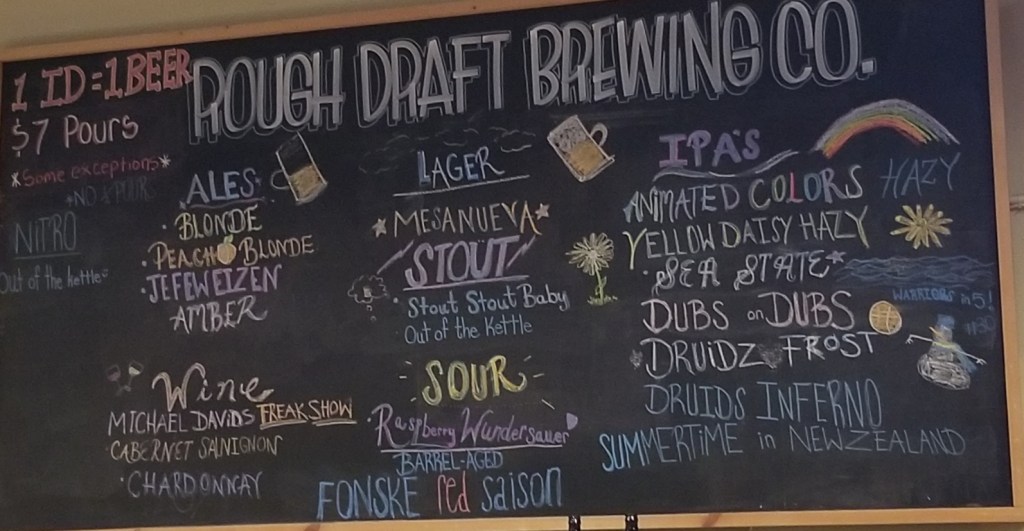 ROUGH DRAFT BREWING CO.
1 ID = 1 BEER
$7 Pours
*Some exceptions*
NITRO
Out of the kettle
ALES
BLONDE
PEACH BLONDE
JEFEWEIZEN
AMBER
Wine
MICHAEL DAVIDS FREAKSHOW
CABERNET SAUVIGNON
CHARDONNAY
LAGER
MESANUEVA
STOUT
Stout Stout Baby
Out of the Kettle
SOUR
Raspberry Wundersauer
BARREL-AGED
FONSKE red saison
IPA'S
ANIMATED COLORS HAZY
YELLOW DAISY HAZY
SEA STATE*
WARRIORS in 5!
DUBS on DUBS
DRUiDZ FROST
DRUIDS INFERNO
SUMMERTIME in NEWZEALAND